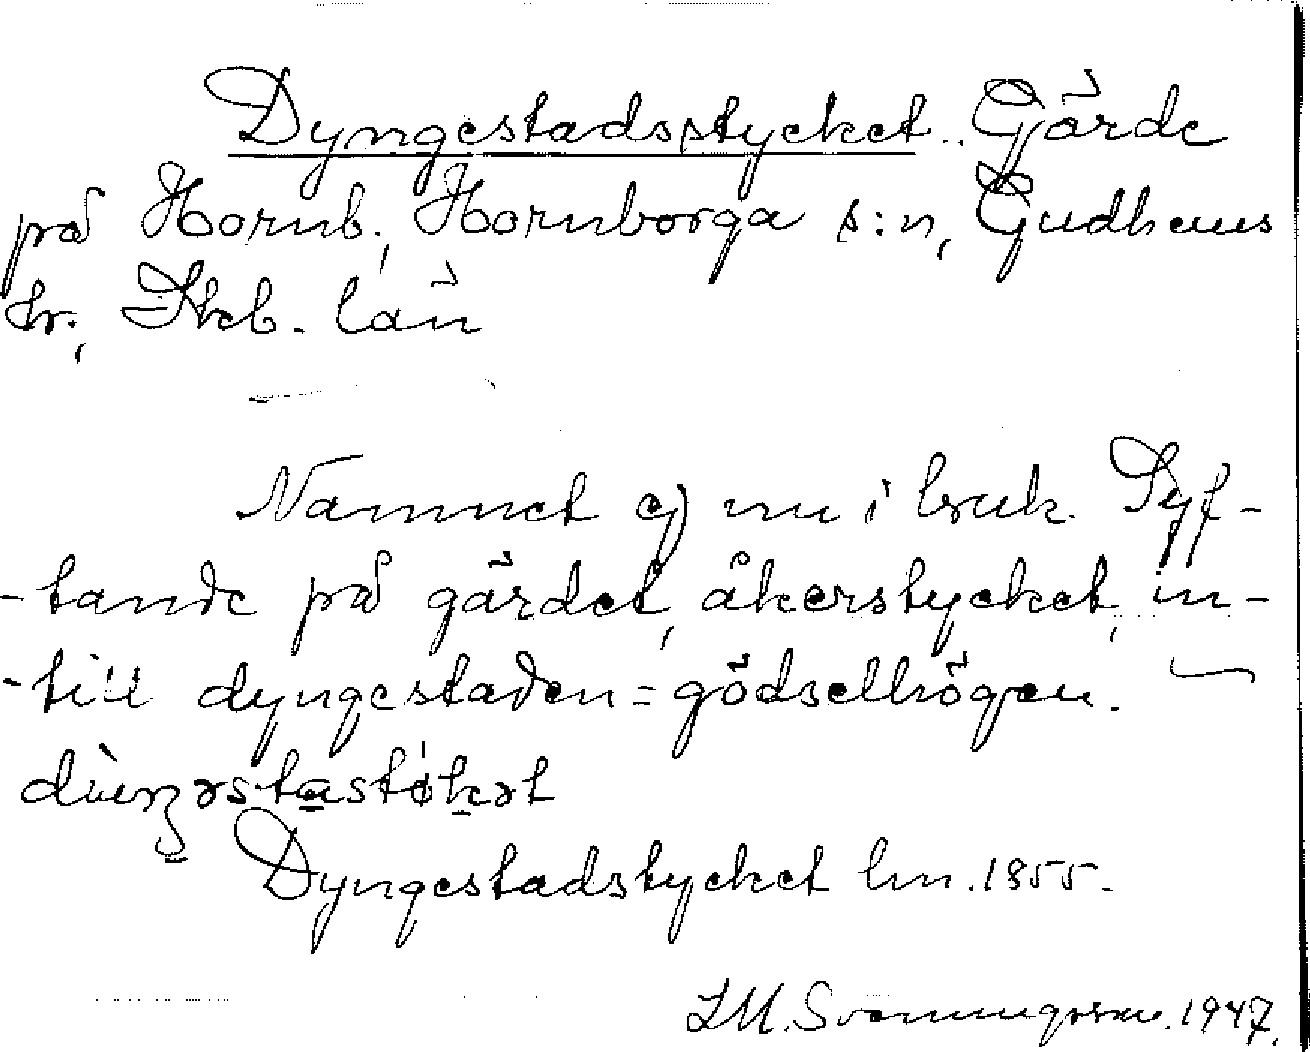 Dyngestadsstycket.. Gärde
på Hornb., Hornborga s:n, Gudhems
hr., Skb. län
Namnet ej nu i bruk. Syf-
-tande på gärdet, åkerstycket, in-
-till dyngestaden = gödselhögen.
Dyngestadstycket lm. 1855.
L.M. Svenungsson. 1947.